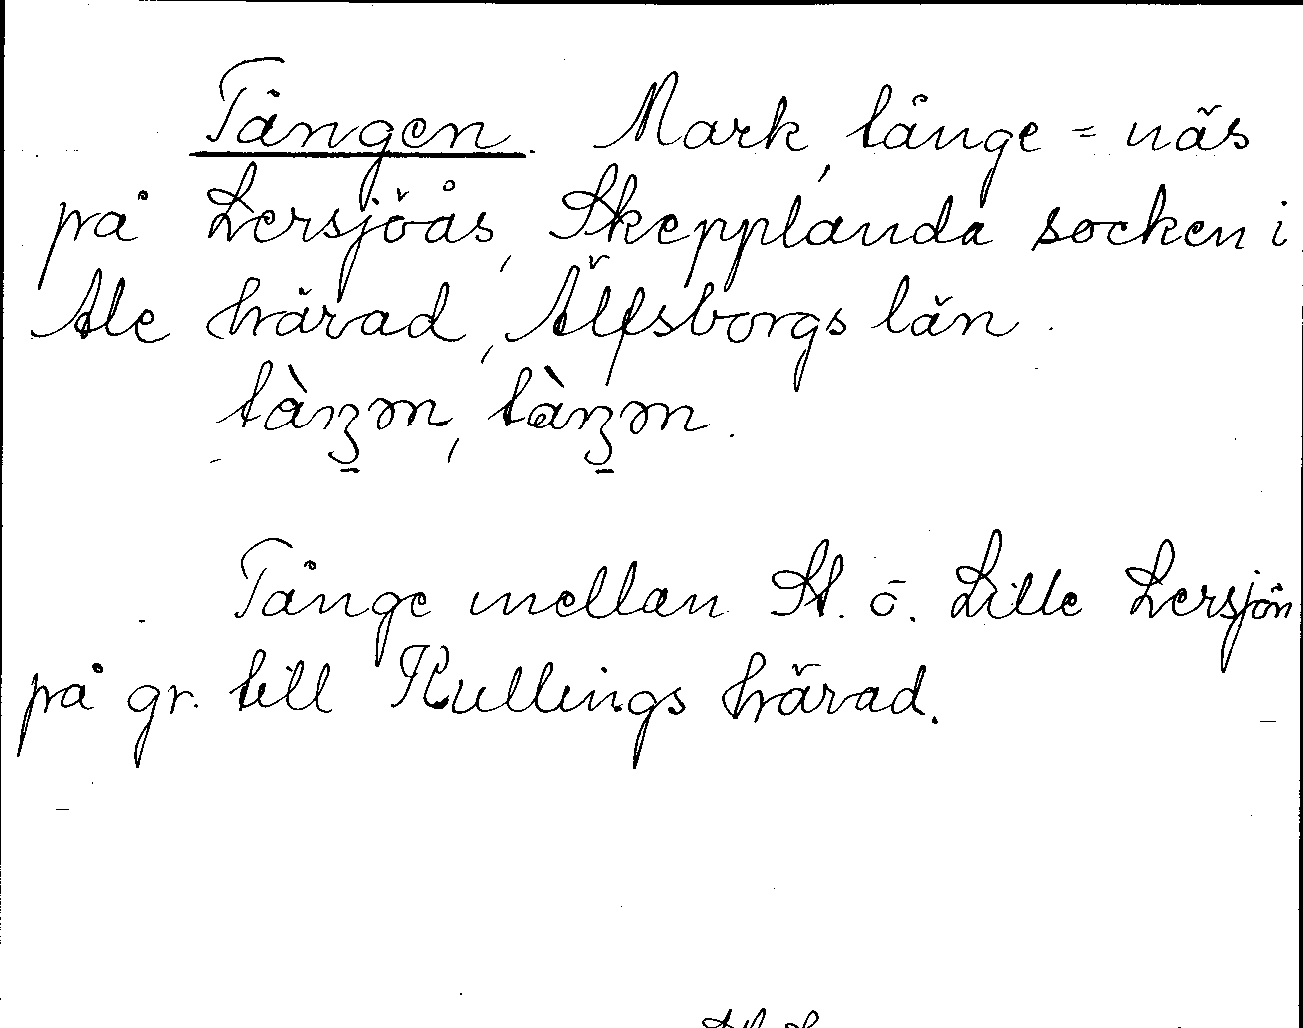 Tången. Mark, tånge = näs
på Lersjöås, Skepplanda socken i
Ale härad, Älfsborgs län.
tàꞃʒən, tàꞃʒən.
Tånge mellan St. o. Lille Lersjön
på gr. till Kullings härad.